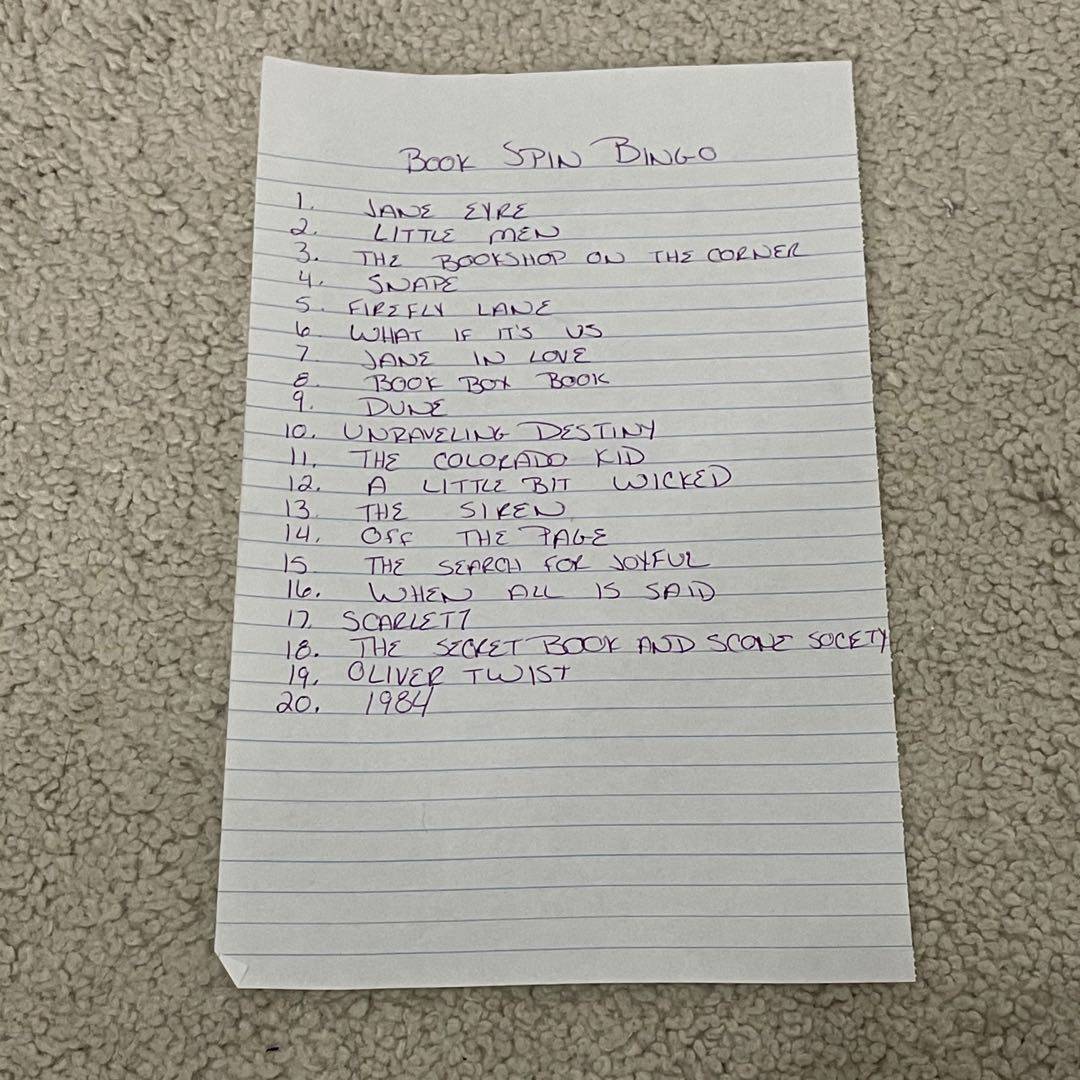 BOOK SPIN BINGO
1. JANE EYRE
2. LITTLE MEN
3. THE BOOKSHOP ON THE CORNER
4. SNAPE
5. FIREFLY LANE
6 WHAT IF IT'S US
7 JANE IN LOVE
8 BOOK BOX BOOK
9. DUNE
10. UNRAVELING DESTINY
11. THE COLORADO KID
12. A LITTLE BIT WICKED
13 THE SIREN
14. OFF THE PAGE
15 THE SEARCH FOR JOYFUL
16. WHEN ALL IS SAID
17. SCARLETT
18. THE SECRET BOOK AND SCONE SOCETY
19. OLIVER TWIST
20. 1984